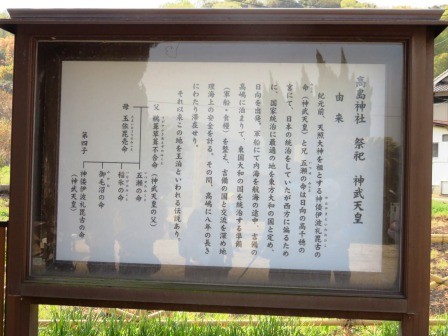 高島神社　祭祀　神武天皇
由来
紀元前、天照大神を祖とする神倭伊波礼毘古の
命（神武天皇）と兄 五瀬の命は日向の高千穂の
宮にて、日本の統治をしていたが西方に偏るため
に、国家統治に最適の地を東方大和の国と定め、
日向を進発、軍船にて内海を航海の途中、吉備の
高嶋に泊まりて、東国大和の国を統治する準備
（軍船・食糧）を整え、吉備の国と交流を深め地
理海上の安全を計る。その間、高嶋に八年の長き
にわたり滞在せり。
それ以来この地を王泊といわれる伝説あり。
父　鵜葺草葺不合命（神武天皇の父）
母　玉依毘売命
五瀬の命
稲氷の命
御毛沼の命
第四子　神倭伊波礼毘古の命
（神武天皇）